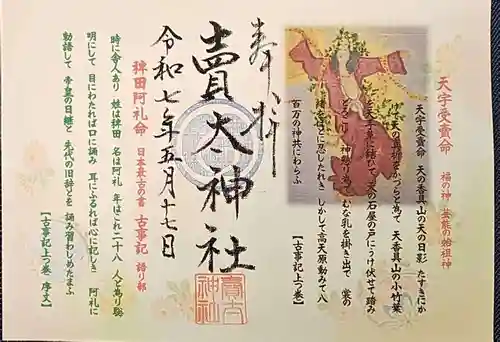 天宇受賣命 福の神 芸能の始祖神
天宇受賣命 天の香具山の天の日影 たすきにか
けて 天の真拆をかづらと為て 天香具山の小竹葉
を天手草に結ひて 天の石屋の戸にうけ伏せて踏み
とどろこし 神懸り為て むな乳を掛き出で 裳の
緒をほとに忍したれき しかして高天原動みて八
百万の神共にわらふ
【古事記上つ巻】
奉拝
賣太神社
令和七年五月十七日
稗田阿礼命 日本最古の書 古事記 語り部
時に舎人あり 姓は稗田 名は阿礼 年はこれ二十八 人と為り聡
明にして 目にわたれば口に誦み 耳にふるれば心に記しき 阿礼に
勅語して 帝皇の日継と 先代の旧辞とを 誦み習わしめたまふ
【古事記上つ巻 序文】
賣太
神社